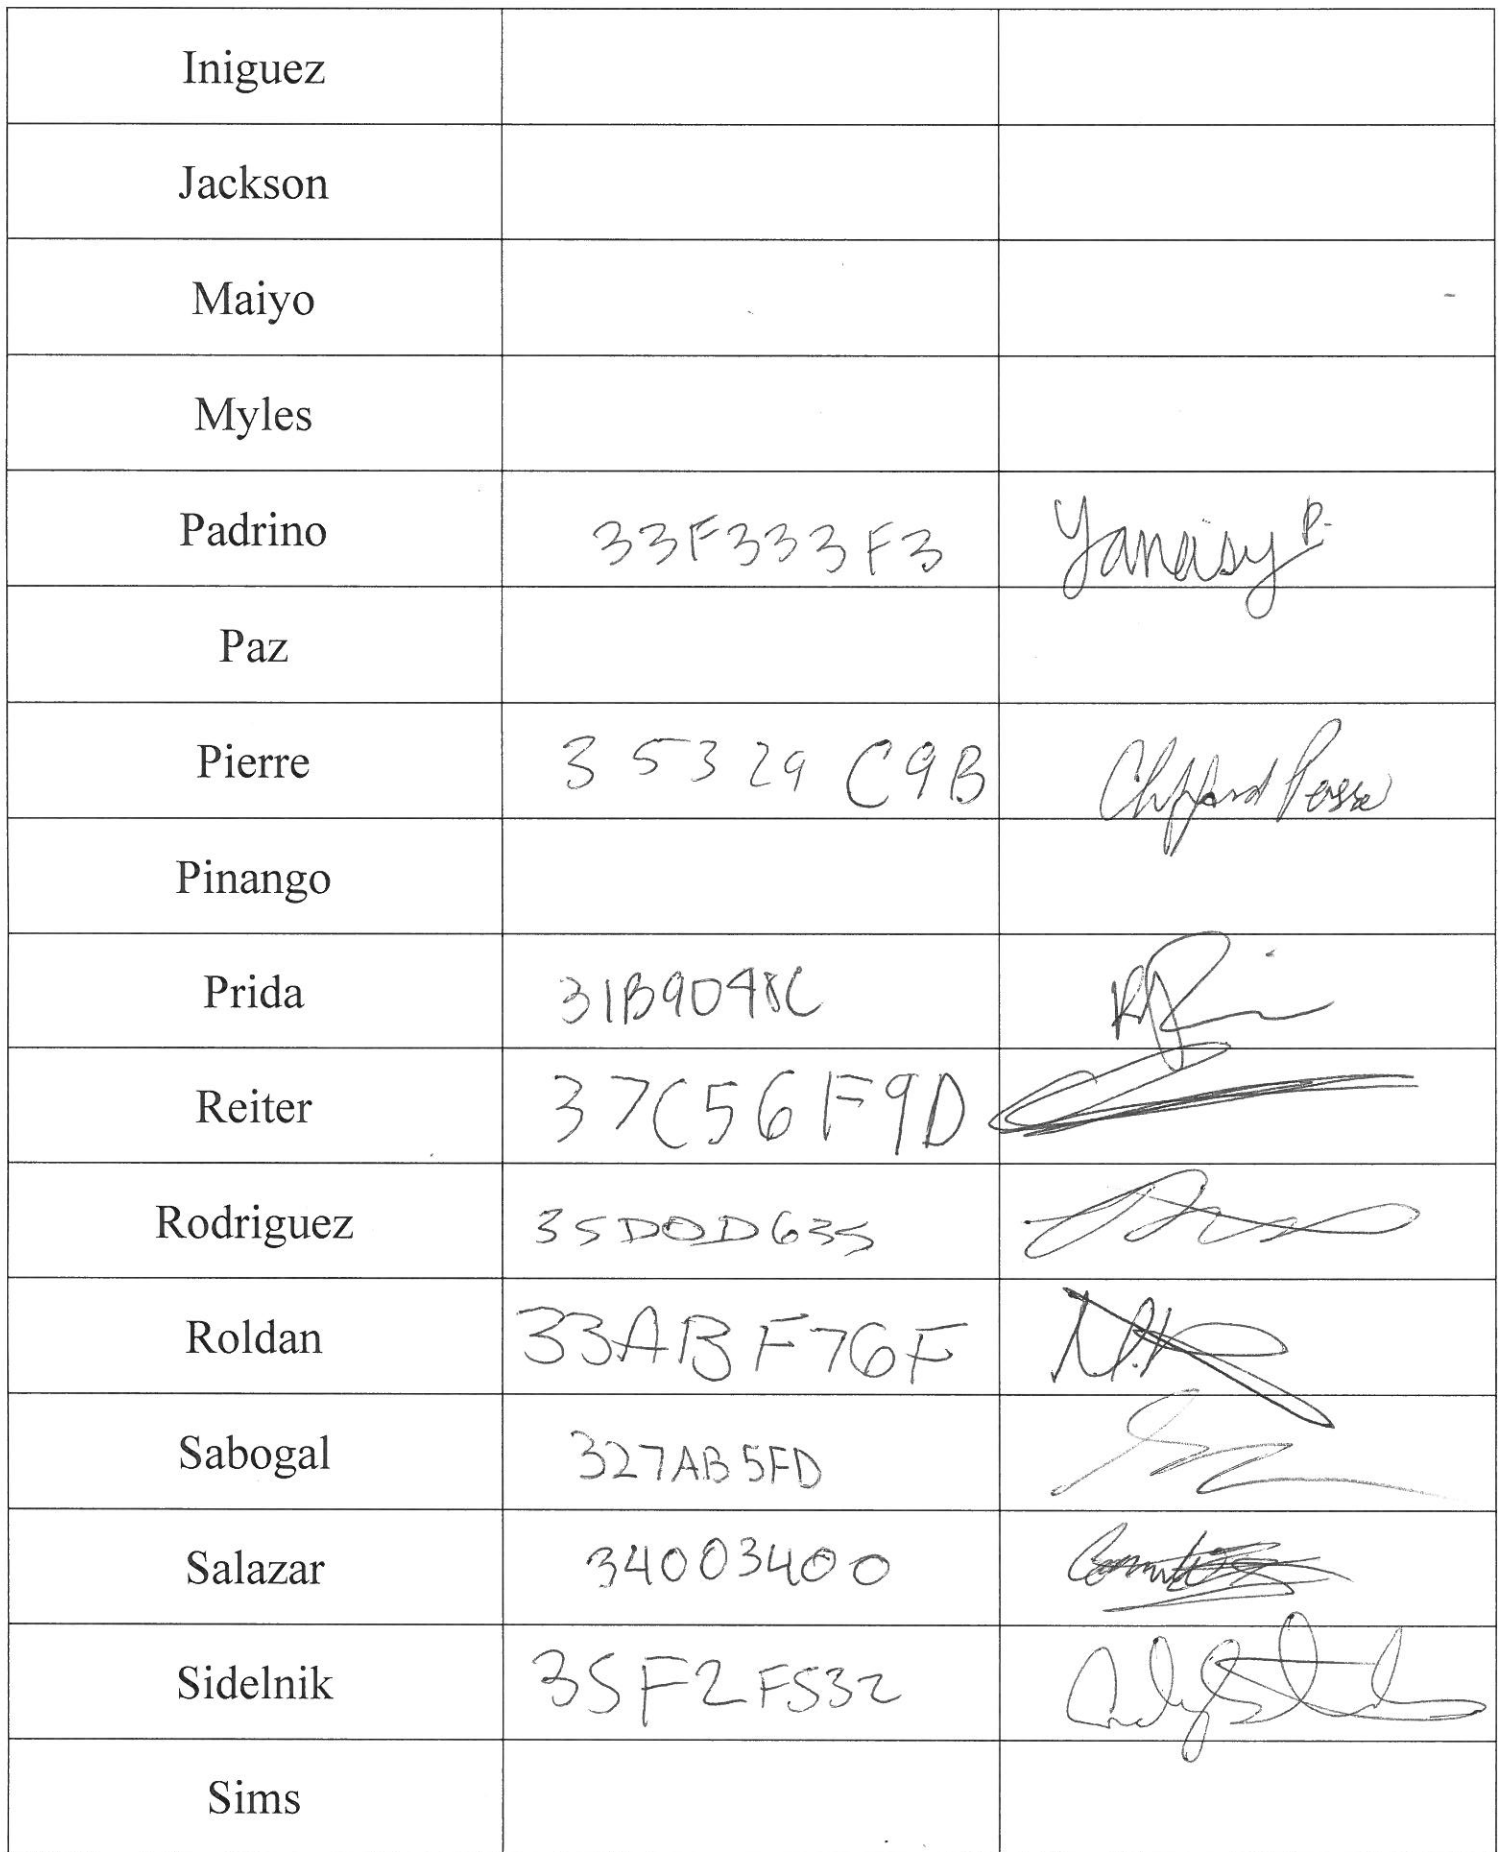 Iniguez
Jackson
Maiyo
Myles
Padrino 33F333F3 Yanaisy P.
Paz
Pierre 35329C9B Clifford Pierre
Pinango
Prida 31B9048C
Reiter 37C56F9D
Rodriguez 35D0D635
Roldan 33ABF76F
Sabogal 327AB5FD
Salazar 34003400
Sidelnik 35F2F532
Sims